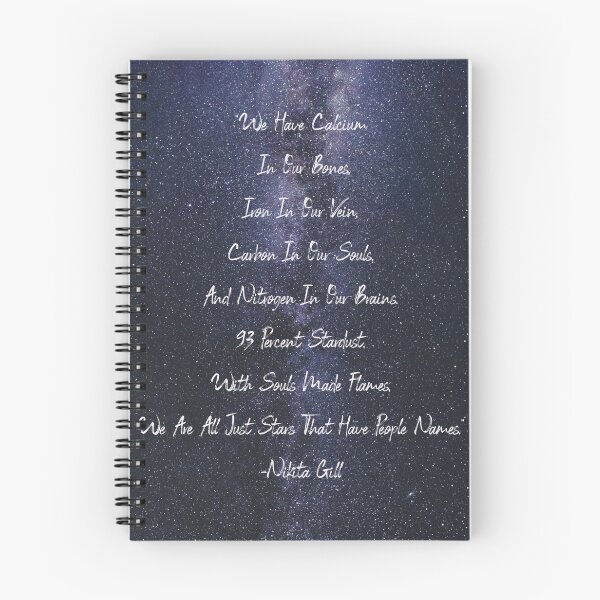 "We Have Calcium
In Our Bones,
Iron In Our Vein,
Carbon In Our Souls,
And Nitrogen In Our Brains.
93 Percent Stardust,
With Souls Made Flames,
We Are All Just Stars That Have People Names."
-Nikita Gill